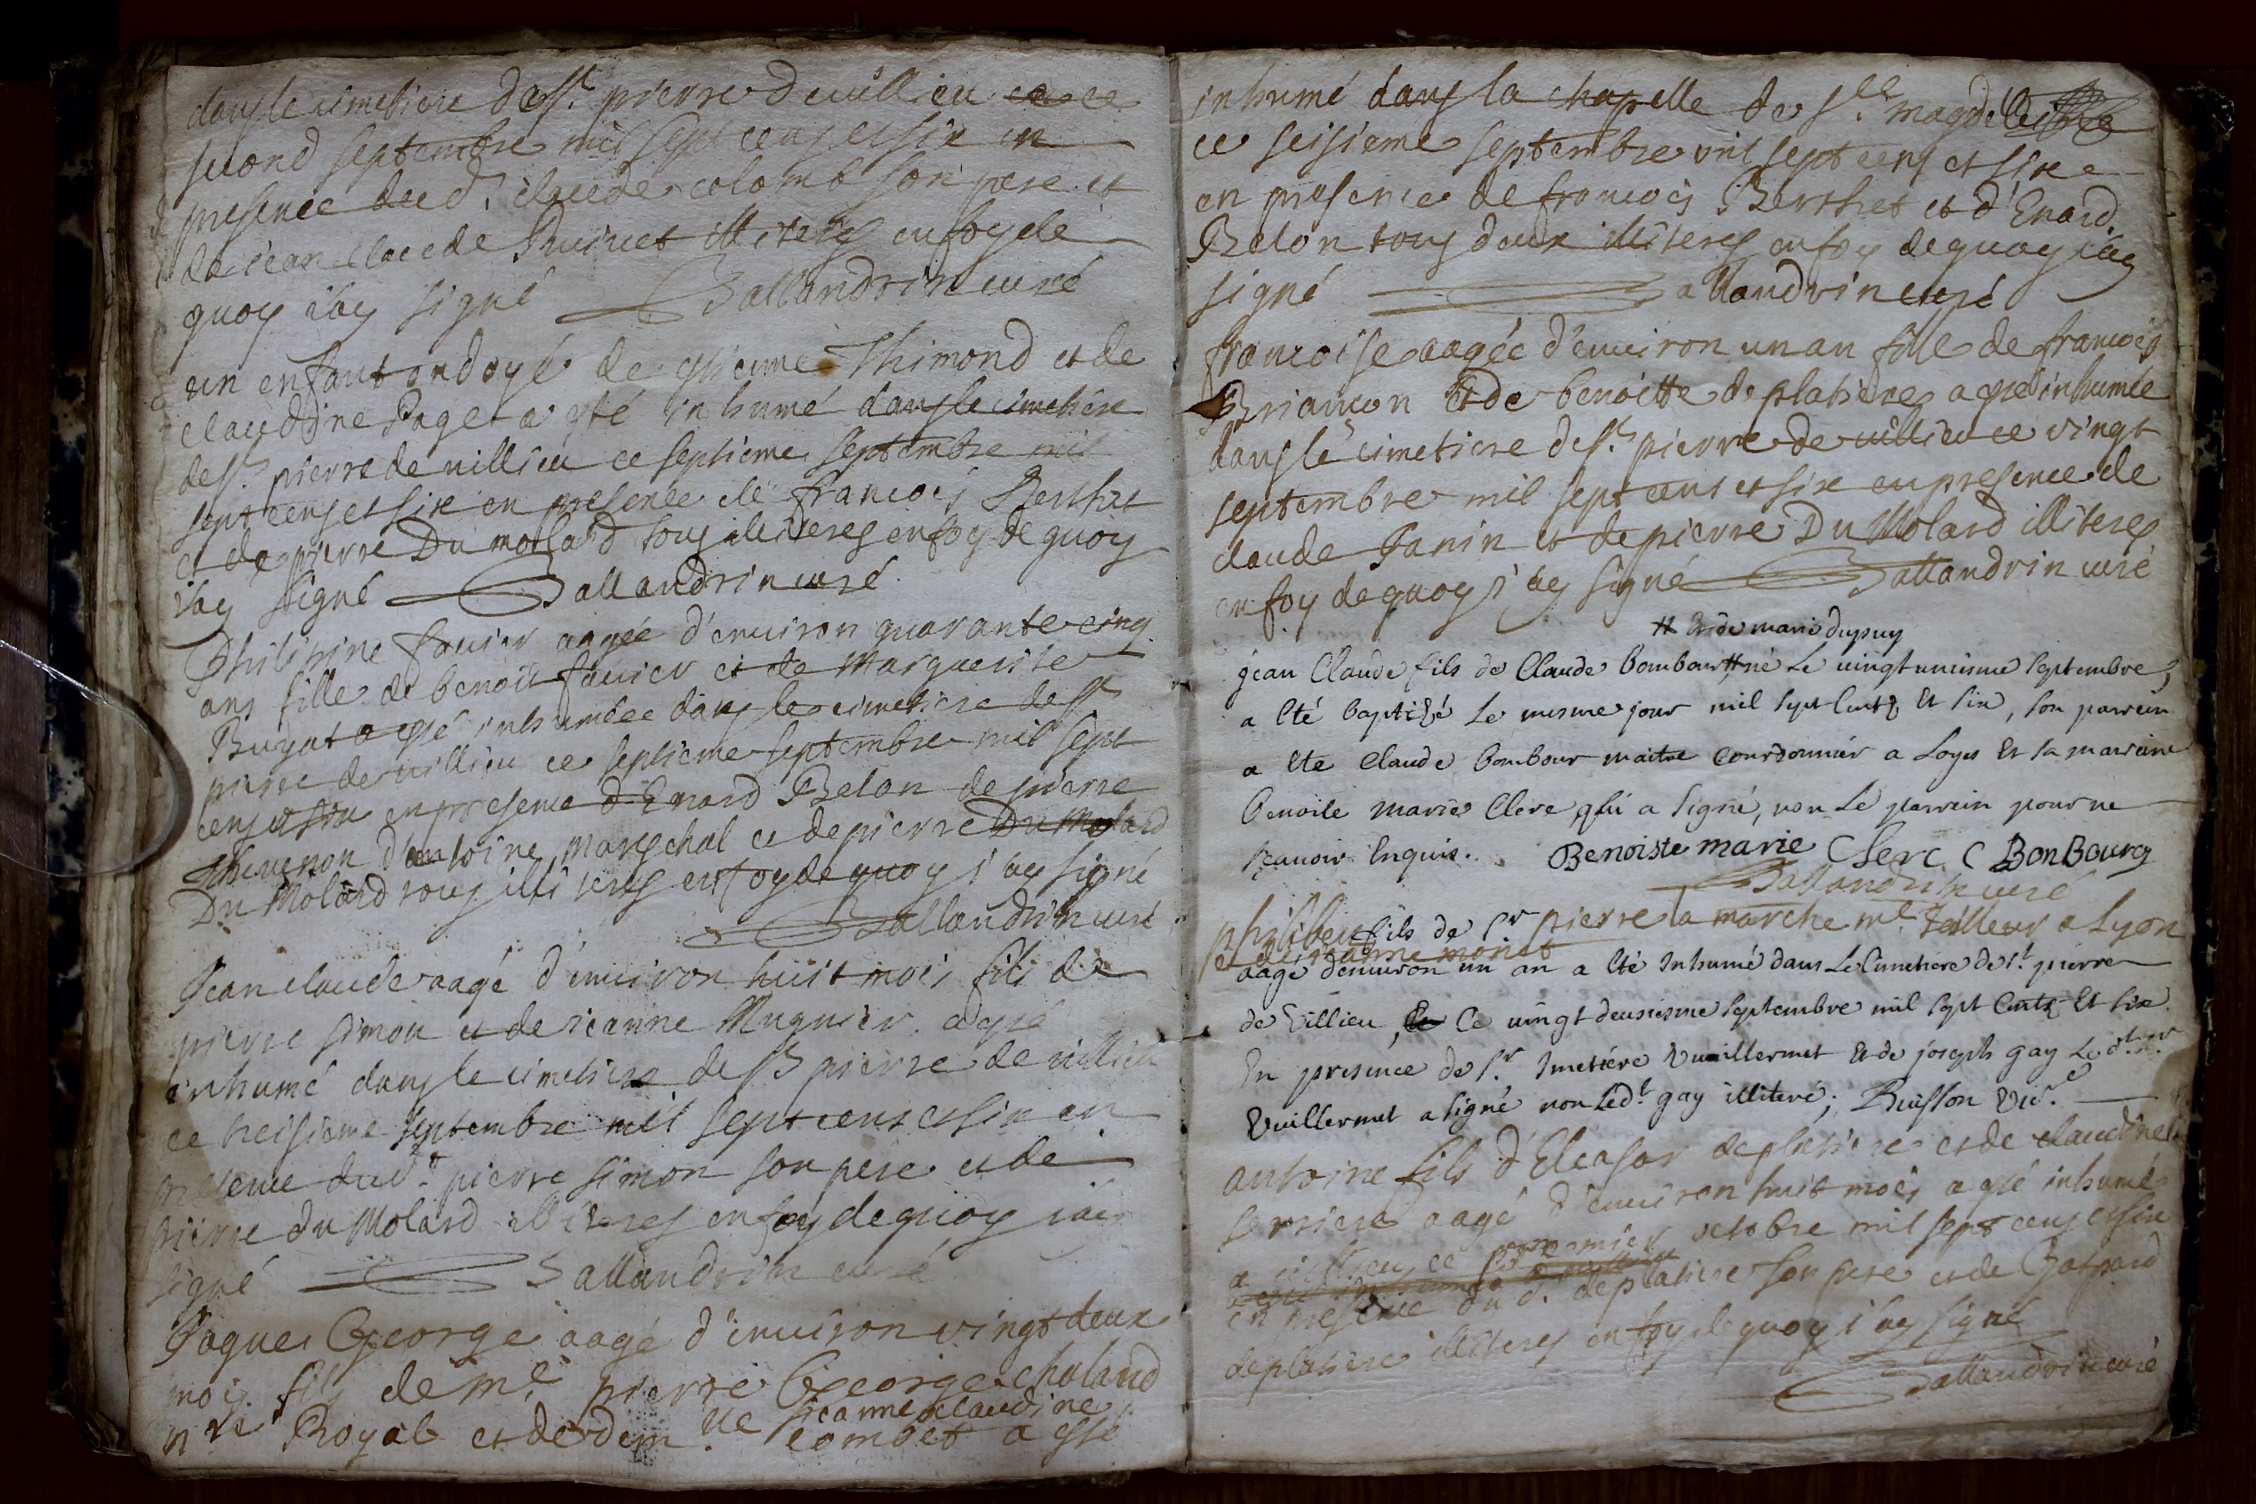 dans le cimetiere de st. pierre de villieu ce
second septembre mil sept cens et six en
presence dud. claude colomb son pere et
de jean claude Puivet illiteres en foy de
quoy i'ay signé Ballandrin curé
un enfant ondoyé de Thimond et de
claudine Paget a esté inhumé dans le cimetiere
de st. pierre de villieu ce septieme septembre mil
sept cens et six en presence de francois Berthet
et de pierre Du molard tous illiteres en foy de quoy
i'ay signé Ballandrin curé
Philipine favier aagée d'environ quarante cinq
ans fille de benoit favier et de Marguerite
Buyat a esté inhumée dans le cimetiere de st
pierre de villieu ce septieme septembre mil sept
cens et six en presence d'Enard Belon de pierre
Thevenon d'antoine Mareschal et de pierre Du Molard
Du Molard tous illiteres en foy de quoy j'ay signé
Ballandrin curé
Jean claude aagé d'environ huit mois fils de
pierre simon et de jeanne Mugnier a esté
inhumé dans le cimetiere de st pierre de villieu
ce treisieme septembre mil sept cens et six en
presence dud. pierre simon son pere et de
pierre du Molard illiteres en foy de quoy i'ay
signé Ballandrin curé
Jaques George aagé d'environ vingt deux
mois fils de me. pierre George chaland
nre Royal et de dem.lle jeanne claudine
combet a esté
inhumé dans la chapelle de ste. magdelleine
ce seisieme septembre mil sept cens et six
en presence de francois Berthet et d'Enard
Belon tous deux illiteres en foy de quoy i'ay
signé Ballandrin curé
francoise aagée d'environ un an fille de francois
Briancon et de benoitte deplatiere a esté inhumée
dans le cimetiere de st. pierre de villieu ce vingt
septembre mil sept cens et six en presence de
claude Janin et de pierre Du Molard illiteres
en foy de quoy j'ay signé Ballandrin curé
# Et de marie dupuy
jean Claude fils de Claude bombour # né Le vingt unieme septembre,
a Eté baptizé Le mesme jour mil sept Cents Et six, son parrein
a Eté Claude bombour maitre Courdonnier a Loyes Et sa marreine
benoite marie Clerc qui a signé, non Le parrein pour ne
sçavoir Enquis. Benoiste marie Clerc C BonBourg
Ballandrin curé
philibert fils de sr pierre la marche me. tailleur a Lyon
et de jeanne monet
aagé d'environ un an a Eté Inhumé dans Le Cimetiere de st. pierre
de Villieu, Ce vingt deusiesme septembre mil sept Cents Et six
En presence de sr. Imetiere Vuillermet Et de joseph gay Le dt. sr
Vuillermet a signé non Led.t gay illiteré; Buisson Vic.e
antoine fils d'Eleasar deplatiere et de claudine
aagé d'environ huit mois a esté inhumé
a villieu ce premier octobre mil sept cens et six
en presence du d. deplatiere son pere et de Gaspard
deplatiere illiteres en foy de quoy i'ay signé
Ballandrin curé